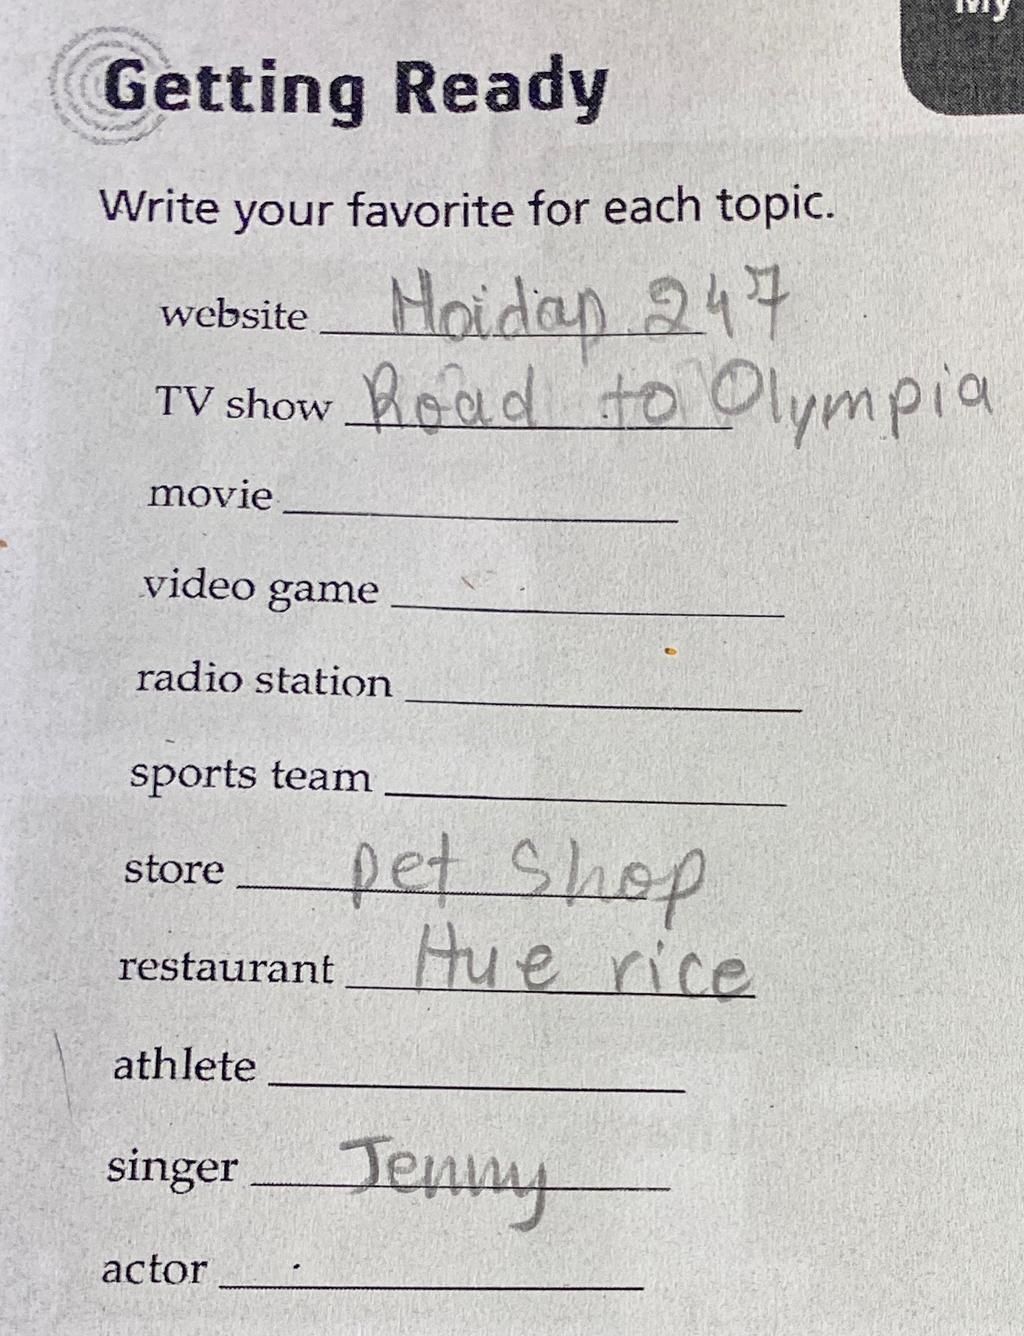 My
Getting Ready
Write your favorite for each topic.
website Hoidap 247
TV show Road to Olympia
movie
video game
radio station
sports team
store pet shop
restaurant Hue rice
athlete
singer Jenny
actor